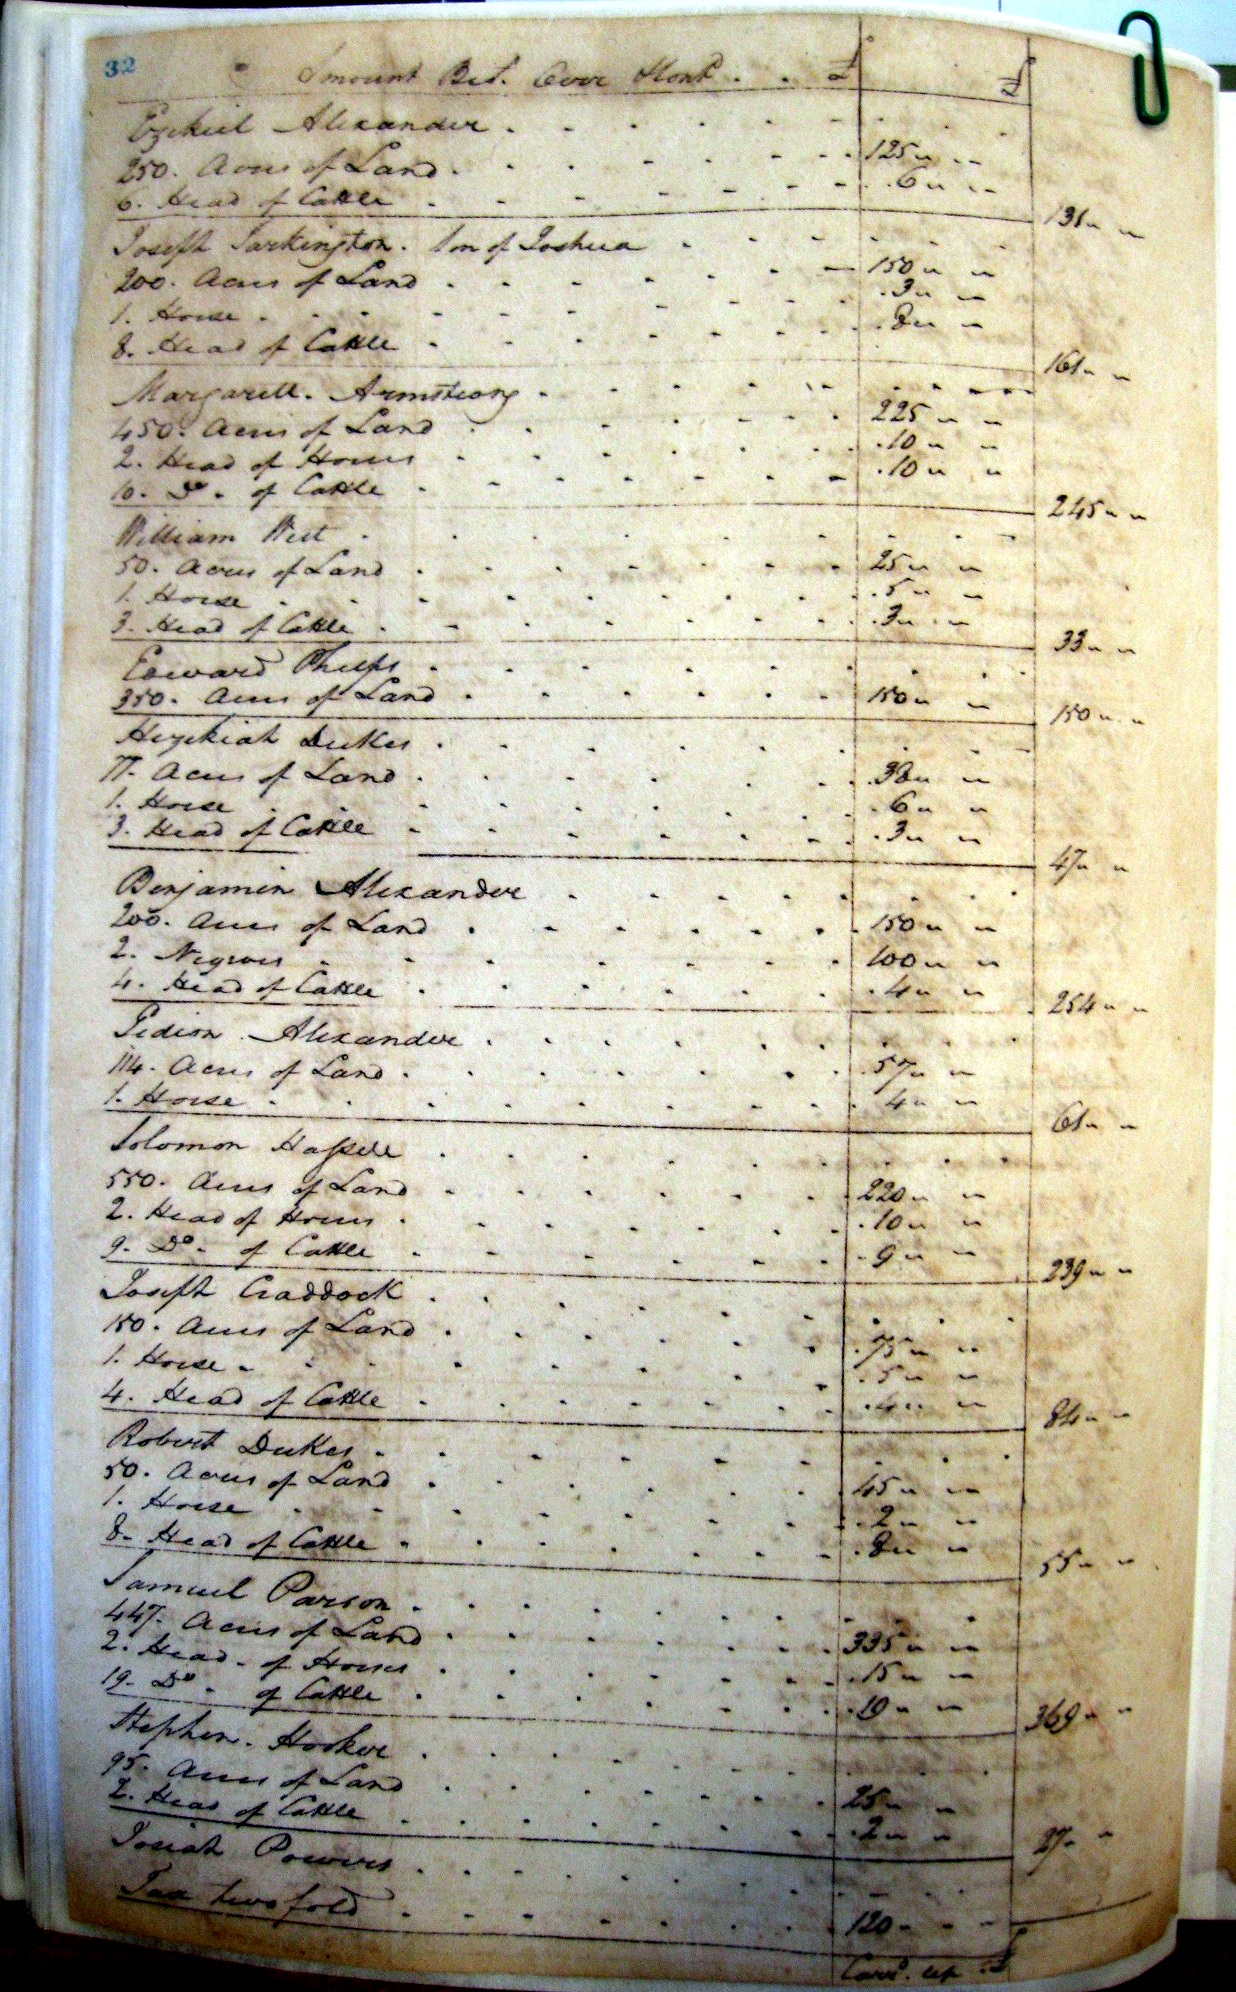 32
Amount Brt. Over Hont . . £ £
Ezekiel Alexander
250. Acres of Land 125 " "
6. Head of Cattle 6 " "
131 " "
Joseph Tarkington. Son of Joshua
200. Acres of Land 150 " "
1. Horse 3 " "
8. Head of Cattle 8 " "
161 " "
Margarett. Armstrong
450. Acres of Land 225 " "
2. Head of Horses 10 " "
10. Do. of Cattle 10 " "
245 " "
William West
50. Acres of Land 25 " "
1. Horse 5 " "
3. Head of Cattle 3 " "
33 " "
Edward Phelps
350. Acres of Land 150 " "
150 " "
Hezekiah Dukes
77. Acres of Land 38 " "
1. Horse 6 " "
3. Head of Cattle 3 " "
47 " "
Benjamin Alexander
200. Acres of Land 150 " "
2. Negroes 100 " "
4. Head of Cattle 4 " "
254 " "
Gideon Alexander
114. Acres of Land 57 " "
1. Horse 4 " "
61 " "
Solomon Hassele
550. Acres of Land 220 " "
2. Head of Horses 10 " "
9. Do. of Cattle 9 " "
239 " "
Joseph Craddock
150. Acres of Land 75 " "
1. Horse 5 " "
4. Head of Cattle 4 " "
84 " "
Robert Dukes
50. Acres of Land 45 " "
1. Horse 2 " "
8. Head of Cattle 8 " "
55 " "
Samuel Parson
447. Acres of Land 335 " "
2. Head of Horses 15 " "
19. Do. of Cattle 19 " "
369 " "
Stephen. Hooker
95. Acres of Land 25 " "
2. Head of Cattle 2 " "
27 " "
Josiah Powers
Tax two fold 120 " "
Carrd. up £